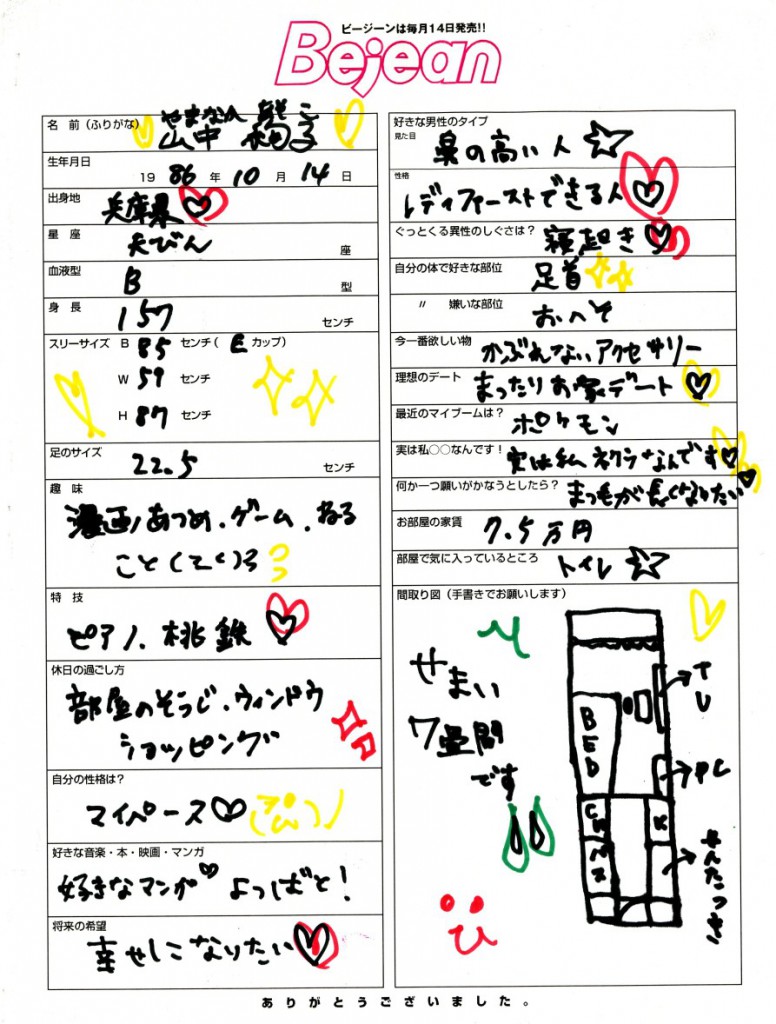 ビージーンは毎月14日発売!!
Bejean
名 前(ふりがな)
やまなか
山中 絢子
生年月日
1986年10月14日
出身地
兵庫県♡
星 座
天びん座
血液型
B型
身 長
157センチ
スリーサイズ B 85センチ(Eカップ)
W 59センチ
H 87センチ
足のサイズ
22.5センチ
趣 味
漫画あつめ、ゲーム、ねる
こと
特 技
ピアノ、桃鉄♡
休日の過ごし方
部屋のそうじ、ウィンドウ
ショッピング
自分の性格は?
マイペース♡
好きな音楽・本・映画・マンガ
好きなマンガ♡ よつばと!
将来の希望
幸せになりたい♡
好きな男性のタイプ
見た目
鼻の高い人☆
性格
レディファーストできる人♡
ぐっとくる異性のしぐさは?
寝起き♡
自分の体で好きな部位
足首
〃 嫌いな部位
おへそ
今一番欲しい物
かぶれないアクセサリー
理想のデート
まったりお家デート♡
最近のマイブームは?
ポケモン
実は私○○なんです!
実は私ネクラなんです♡
何か一つ願いがかなうとしたら?
まつ毛が長くなりたい♡
お部屋の家賃
7.5万円
部屋で気に入っているところ
トイレ☆
間取り図(手書きでお願いします)
せまい
7畳間
です
TV
BED
PC
K
せんたっき
ありがとうございました。